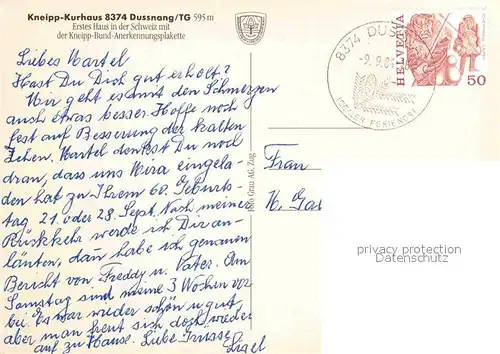 Kneipp-Kurhaus 8374 Dussnang/TG 595 m
Erstes Haus in der Schweiz mit
der Kneipp-Bund-Anerkennungsplakette
Liebes Martel
Hast Du Dich gut erholt?
Mir geht es mit den Schmerzen
auch etwas besser. Hoffe noch
fest auf Besserung der kalten
Zehen. Martel denkst Du noch
dran, dass uns Mira eingela-
den hat zu Ihrem 60. Geburts-
tag 21. oder 28. Sept. Nach meiner
Rückkehr werde ich Dir an-
läuten, dann habe ich genauen
Bericht von Freddy u. Vater. Am
Samstag sind meine 3 Wochen vor
bei. Es war wieder schön u. gut,
aber man freut sich doch wieder
auf zu Hause. Liebe Grüsse
Lisel
Foto Grau AG, Zug
8374 DUSS
-9.9.8
IDEALER FERIENORT
HELVETIA
50
Frau
M. Gas
watermark protection